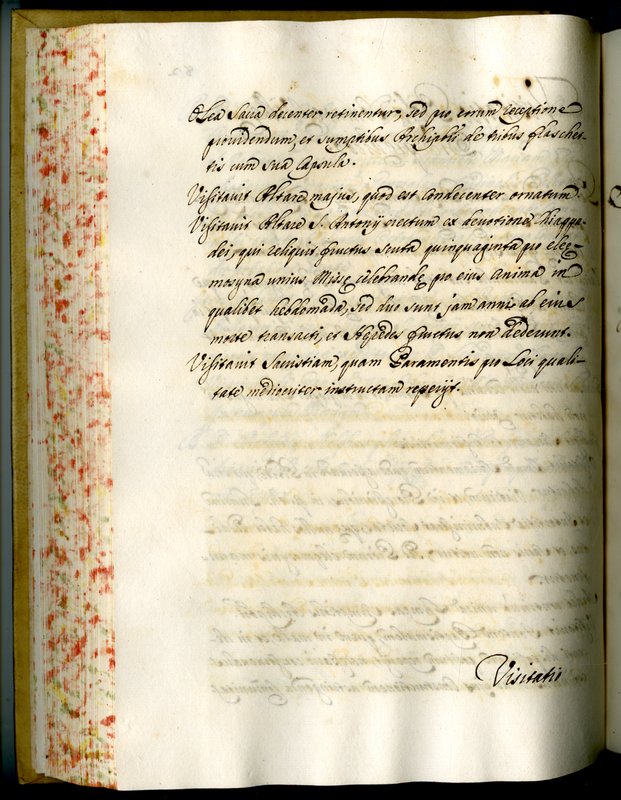 Olea Sacra decenter retinentur, sed pro eorum receptione
providendum, et sumptibus Archipbri de tribus flaschet-
tis cum sua Capsula.
Visitavit Altare majus, quod est condecenter ornatum.
Visitavit Altare S. Antonij erectum ex devotione
dei, qui reliquit fructus scuta quinquaginta pro elee-
mosyna unius Missę celebrandę pro eius Anima in
qualibet hebdomada, sed duo sunt jam anni ab eius
morte transacti, et Hęredes fructus non dederunt.
Visitavit Sacristiam, quam Paramentis pro Loci quali-
tate mediocriter instructam reperijt.
Visitatio